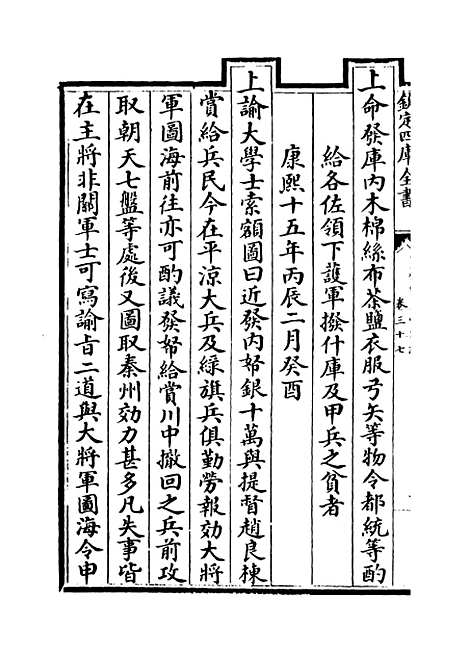 欽定四庫全書
卷三十七
上命發庫内木棉絲布茶鹽衣服弓矢等物令都統等酌
給各佐領下護軍撥什庫及甲兵之貧者
康熙十五年丙辰二月癸酉
上諭大學士索額圖曰近發内帑銀十萬與提督趙良棟
賞給兵民今在平涼大兵及綠旗兵俱勤勞報効大將
軍圖海前往亦可酌議發帑給賞川中撤回之兵前攻
取朝天七盤等處後又圖取秦州効力甚多凡失事皆
在主將非關軍士可寫諭旨二道與大將軍圖海令申